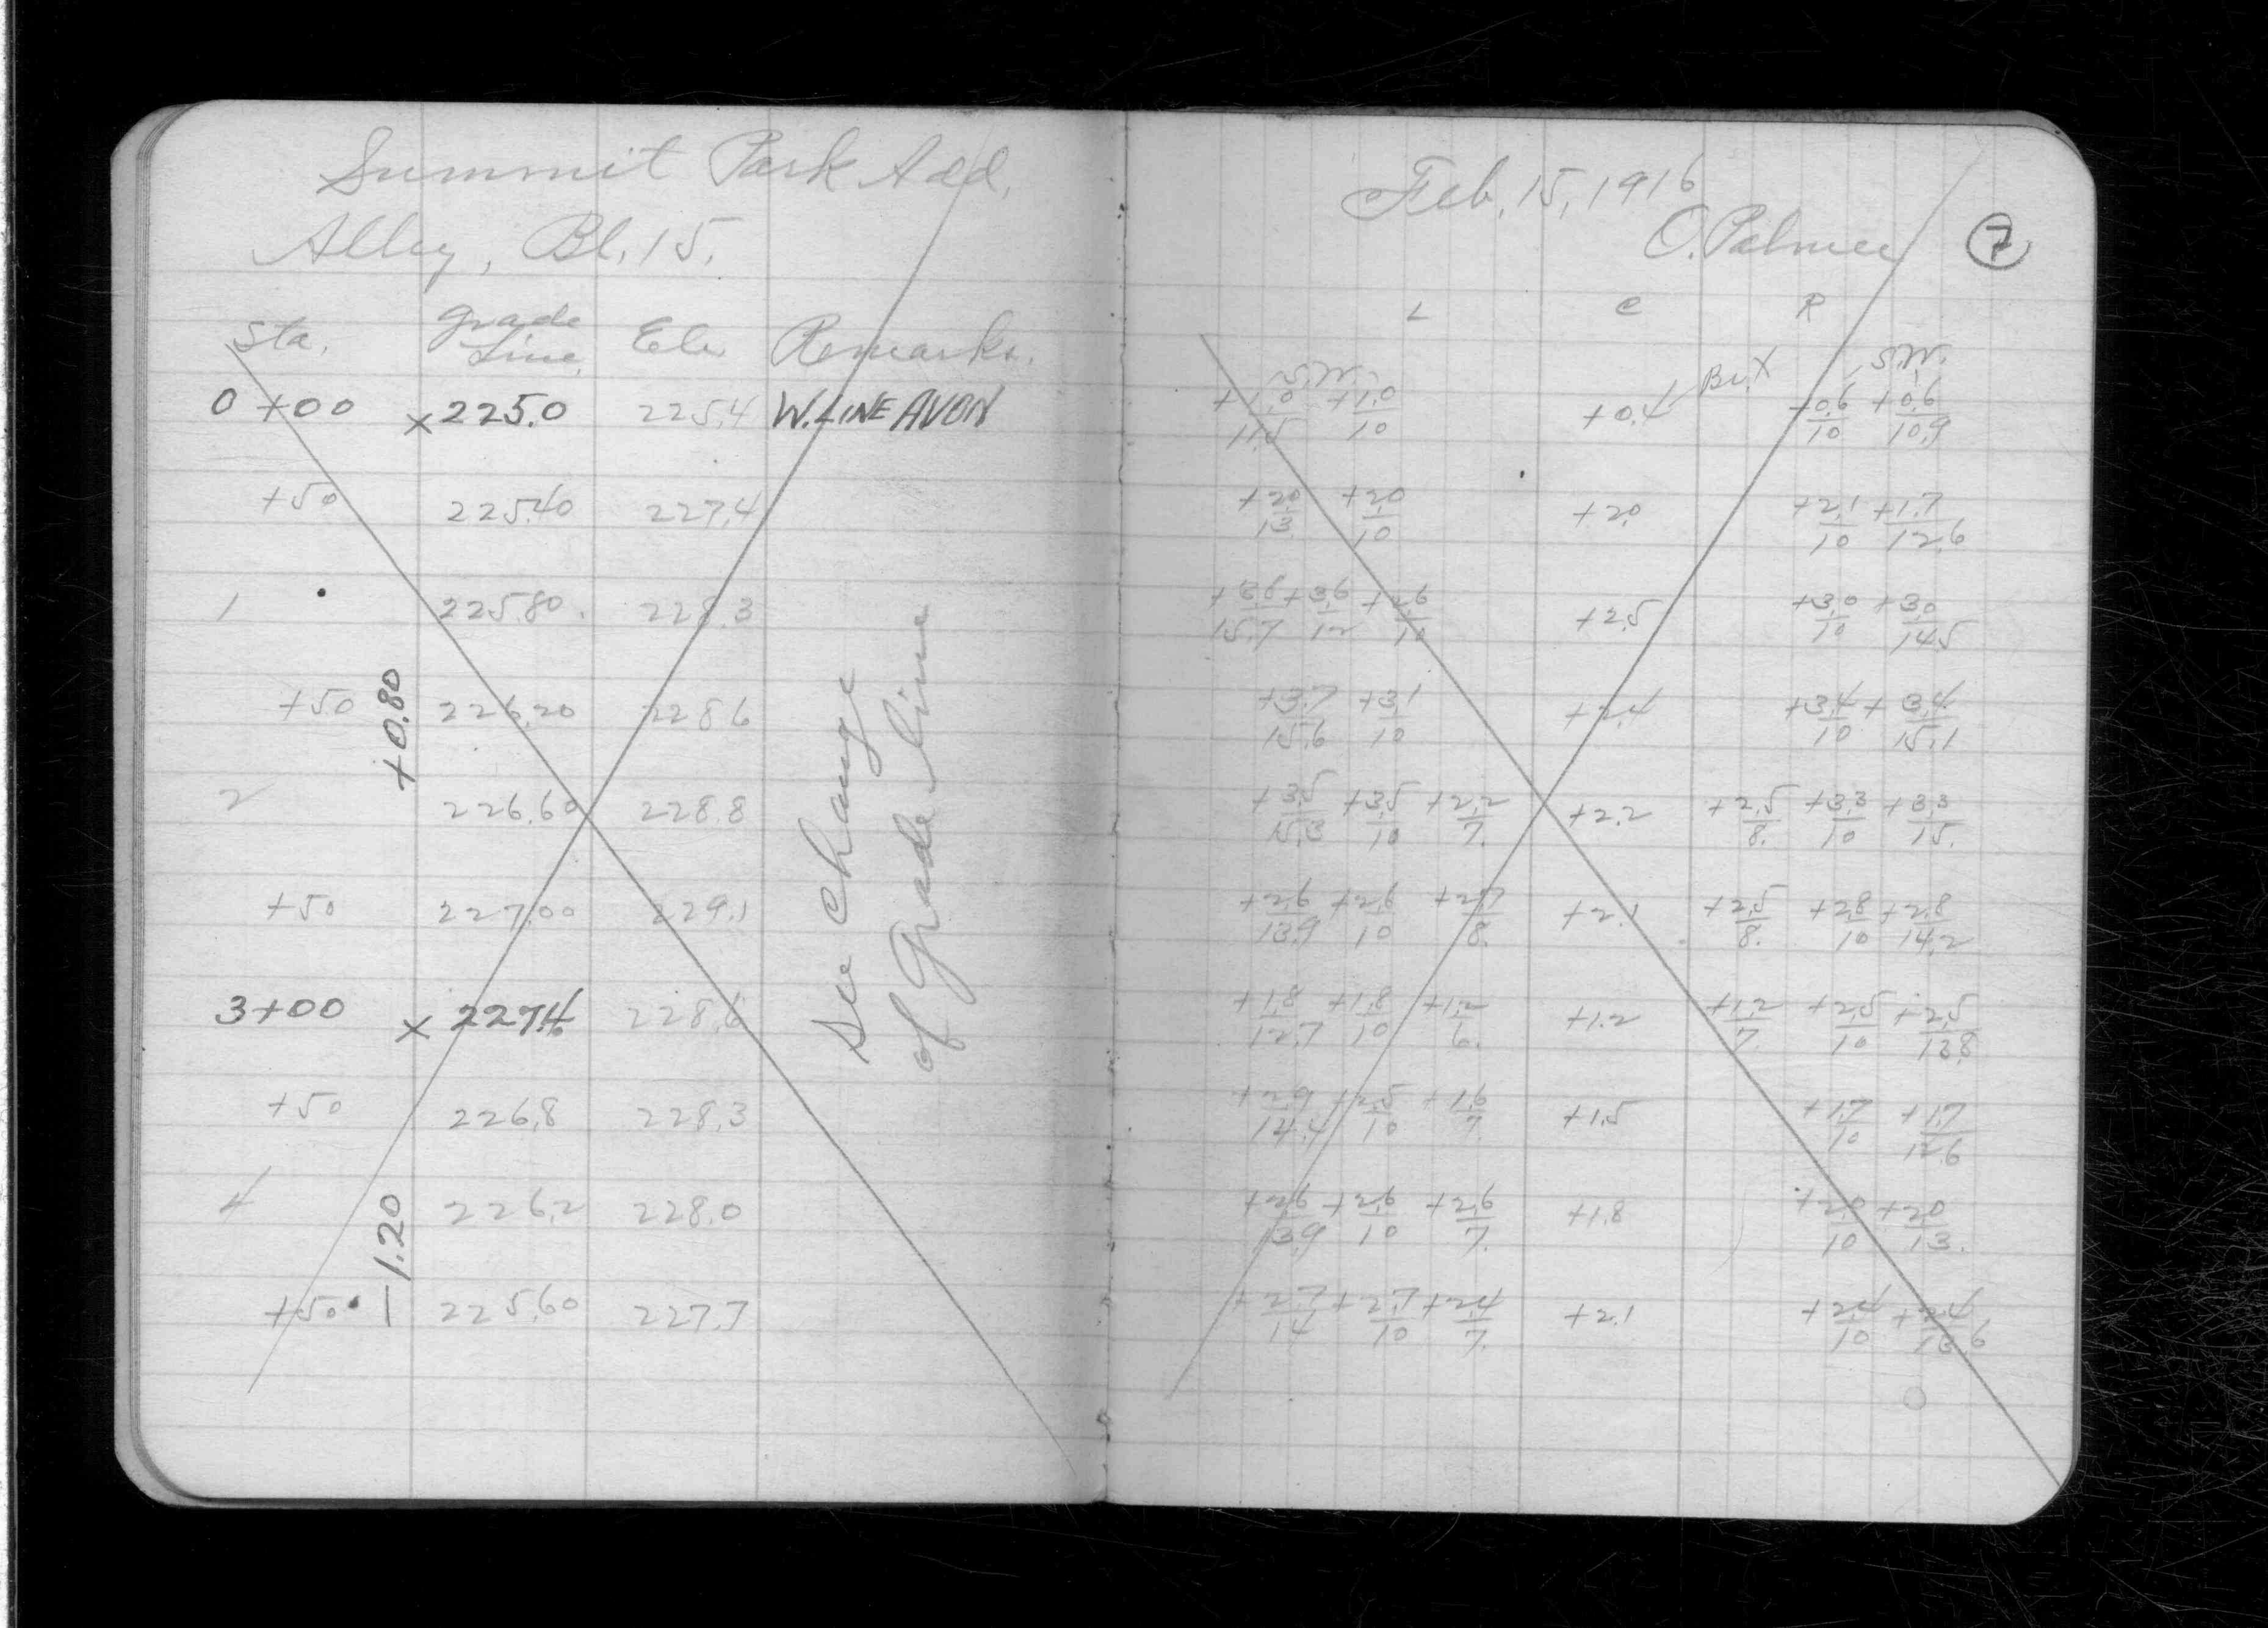 Summit Park Add.
Alley, Bl. 15.
Sta. Grade Line Ele. Remarks.
0+00 x 225.0 225.4 W. LINE AVON
+50 225.40 227.4
1 225.80 228.3
+50 226.20 228.6
2 226.60 228.8
+50 227.00 229.1
3+00 x 227.4 228.6
+50 226.8 228.3
4 226.2 228.0
+50 225.60 227.7
+0.80
-1.20
See Change
of Grade line
Feb. 15, 1916
O. Palmer 7
L C R
S.W. Br. X S.W.
+1.0/11.5 +1.0/10 +0.4 +0.6/10 +0.6/10.9
+2.0/13. +2.0/10 +2.0 +2.1/10 +1.7/12.6
+3.8/15.7 +3.6/12 +2.6/10 +2.5 +3.0/10 +3.0/14.5
+3.7/15.6 +3.1/10 +2.4 +3.4/10 +3.4/15.1
+3.5/15.3 +3.5/10 +2.2/7. +2.2 +2.5/8. +3.3/10 +3.3/15.
+2.6/13.9 +2.6/10 +2.7/8. +2.1 +2.5/8. +2.8/10 +2.8/14.2
+1.8/12.7 +1.8/10 +1.2/6. +1.2 +1.2/7 +2.5/10 +2.5/13.8
+2.9/14.4 +2.5/10 +1.6/7. +1.5 +1.7/10 +1.7/12.6
+2.6/13.9 +2.6/10 +2.6/7. +1.8 +2.0/10 +2.0/13.
+2.7/14 +2.7/10 +2.4/7. +2.1 +2.4/10 +2.4/13.6